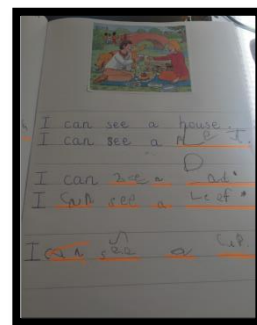 I can see a house.
I can see a
I can see a
I can see a Leaf.
I can see a cup